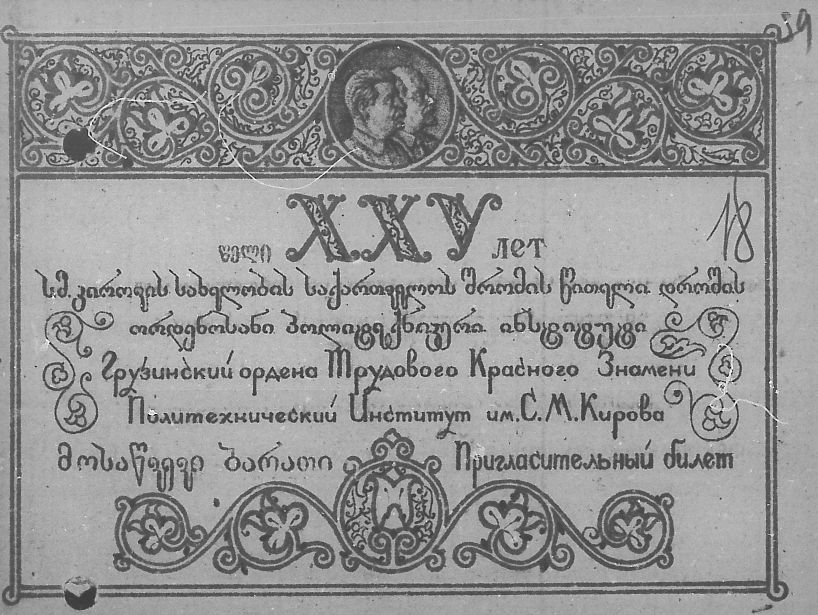 59
18
წელი XXV лет
ს.მ. კიროვის სახელობის საქართველოს შრომის წითელი დროშის
ორდენოსანი პოლიტექნიკური ინსტიტუტი
Грузинский ордена Трудового Красного Знамени
Политехнический Институт им. С. М. Кирова
მოსაწვევი ბარათი Пригласительный билет